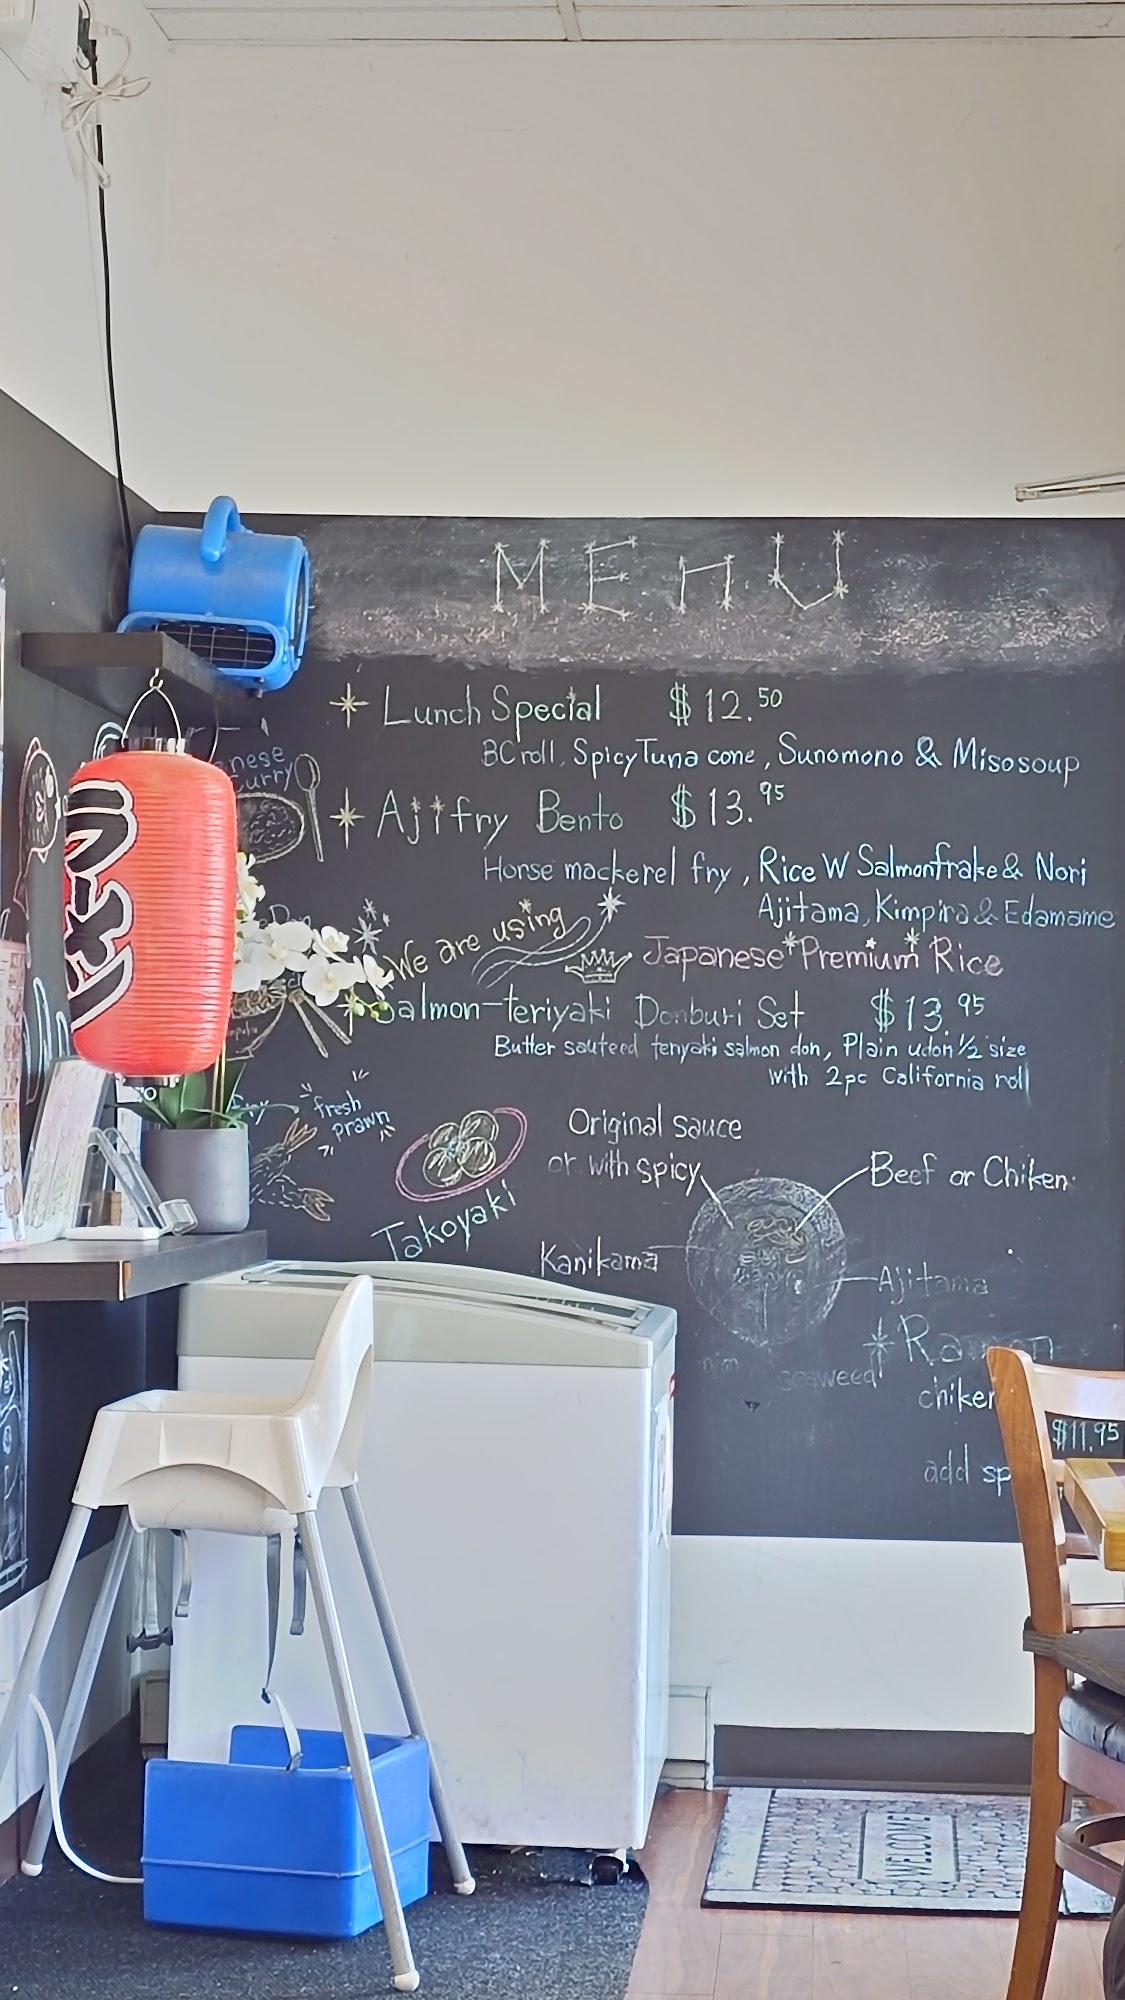 MEnU
Lunch Special $12.50
BC roll, Spicy Tuna cone, Sunomono & Misosoup
nese
curry
Ajifry Bento $13.95
Horse mackerel fry, Rice W Salmonfrake & Nori
Ajitama, Kimpira & Edamame
We are using
Japanese Premium Rice
Salmon-teriyaki Donburi Set $13.95
Butter sauteed teriyaki salmon don, Plain udon ½ size
with 2pc California roll
fresh
prawn
Takoyaki
Original sauce
or with spicy
Beef or Chiken
Kanikama
Ajitama
Ramen
seaweed
chiken
$11.95
add sp
WELCOME